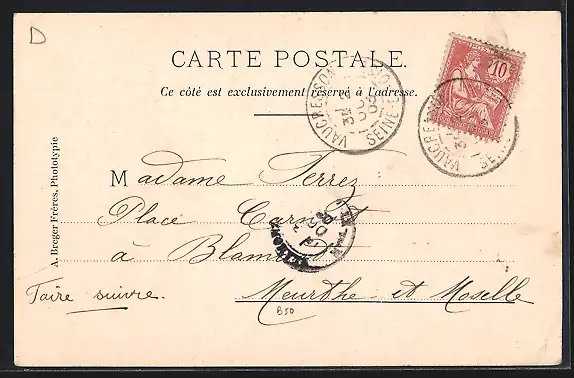 D
CARTE POSTALE.
Ce côté est exclusivement réservé à l'adresse.
VAUCRESSON
SEINE-ET-
10
VAUCRE
SE
Madame Ferrez
Place Carnot
à Blamont
Meurthe et Moselle
Faire suivre.
B50
A. Breger Frères, Phototypie